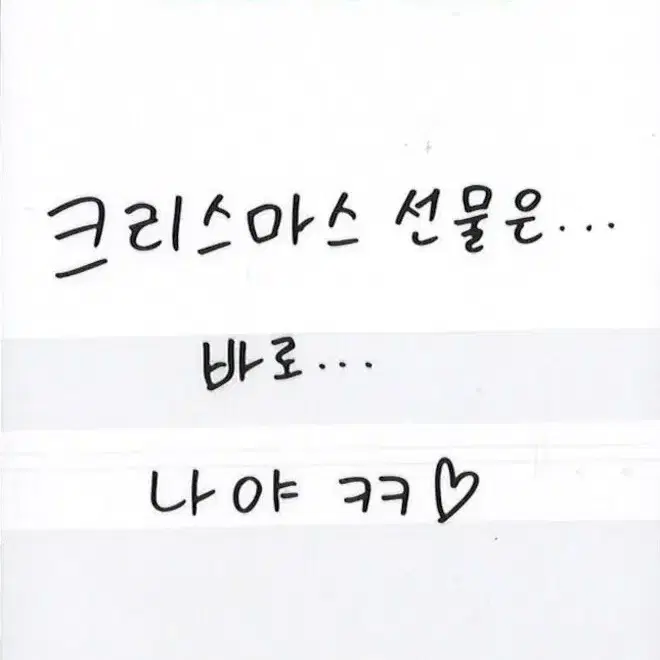 크리스마스 선물은...
바로...
나야 ㅋㅋ♡